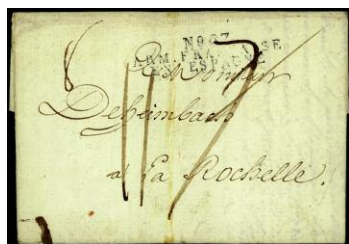 8
No 27
ARM. FRANÇAISE
EN ESPAGNE
A Monsieur
Deheimbach
a La Rochelle.